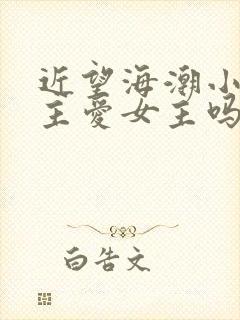 近望海潮小
主爱女主吗
白告文